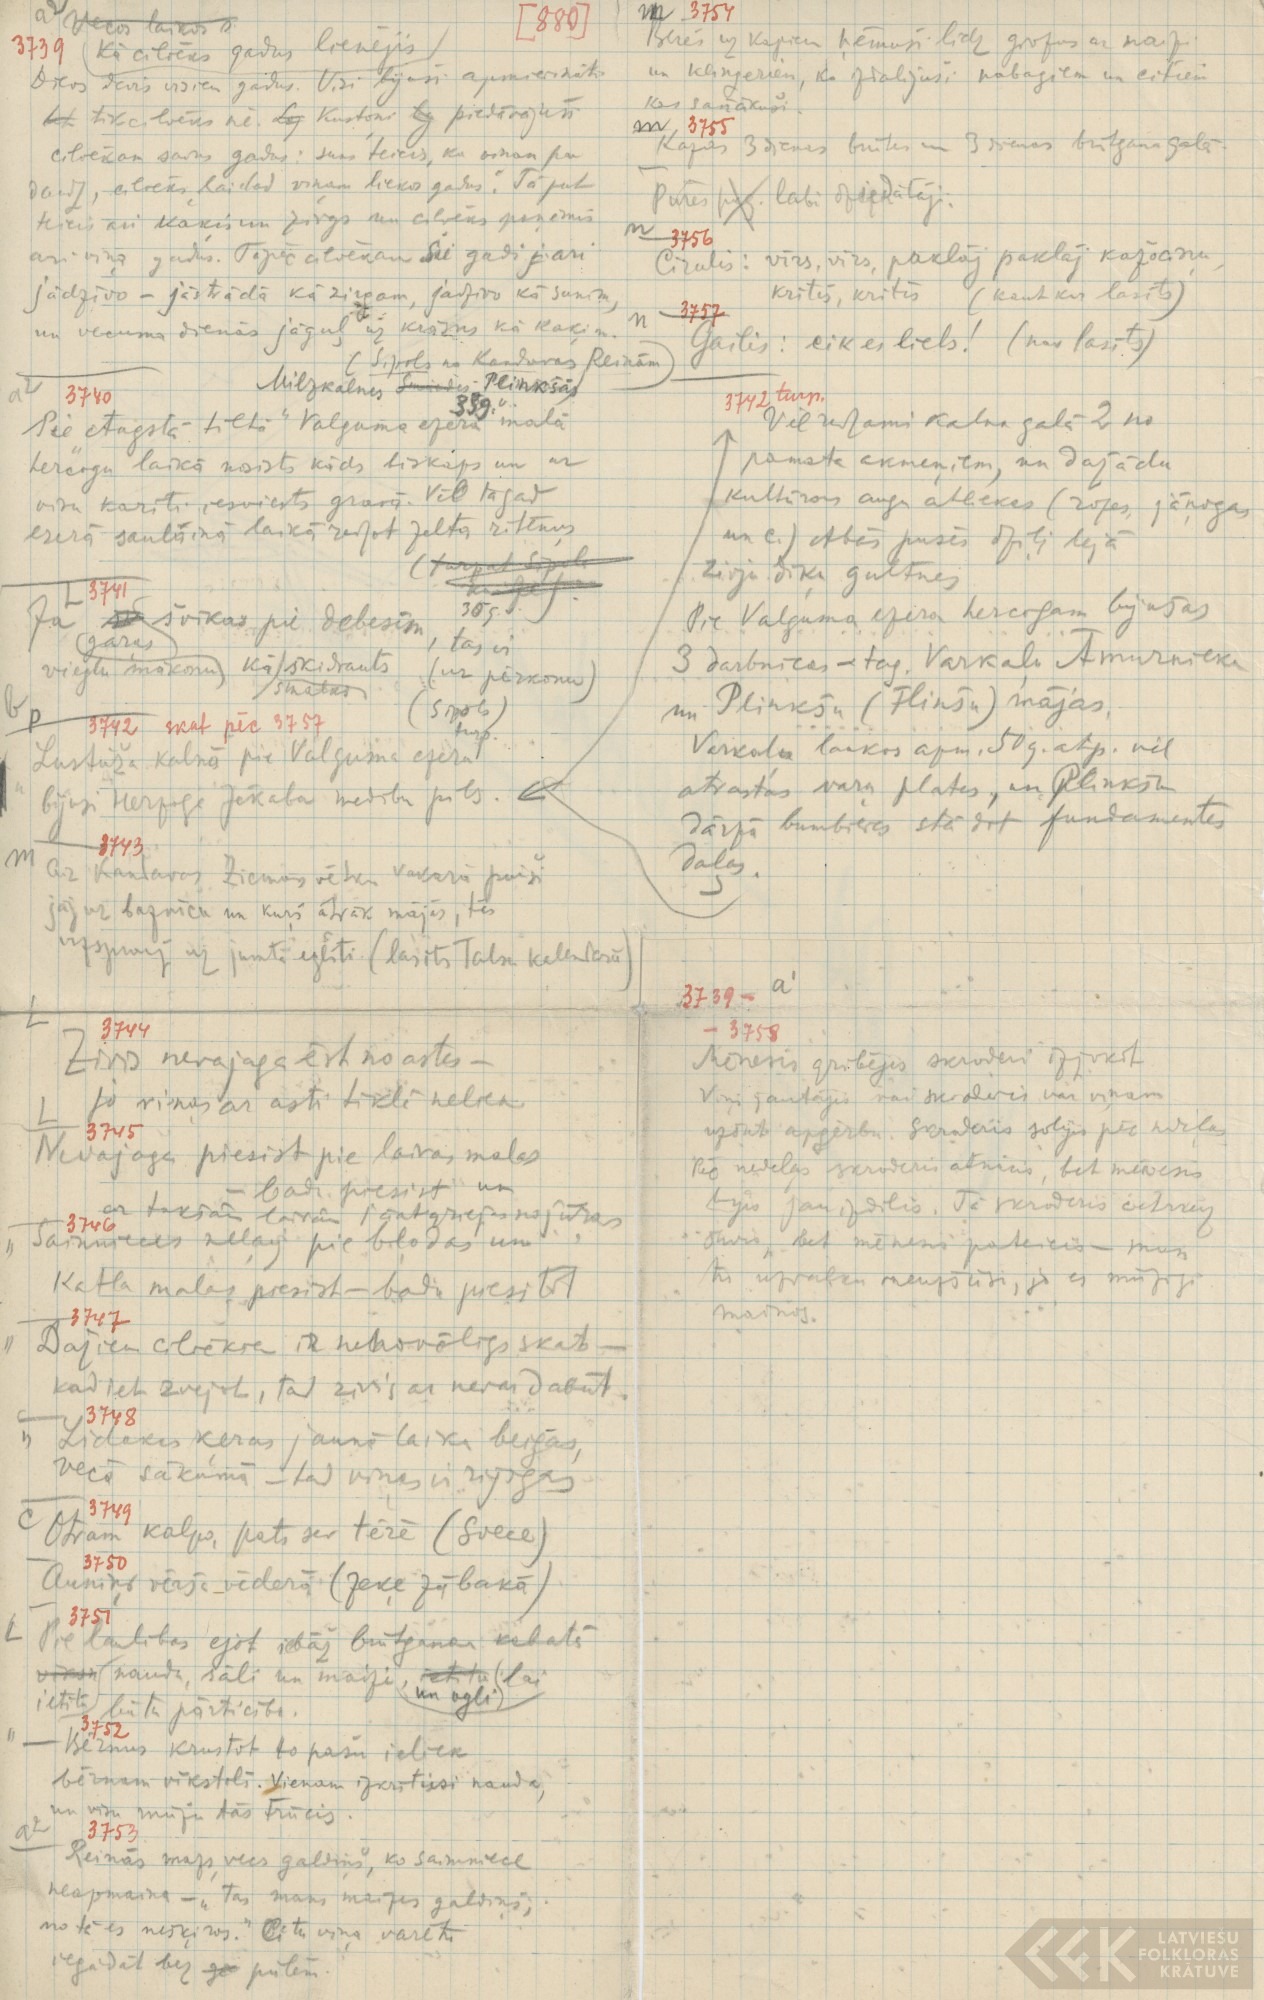 [880]
a2 Vecos laikos
3739 Kā cilvēks gadus lienējis
Dievs devis visiem gadus. Visi bijuši apmierināti
tik cilvēks nē. Kustoņi piedāvājuši
cilvēkam savus gadus: suns teicis, ka viņam par
daudz, cilvēks lai tad viņam liekos gadus. Tāpat
teicis ari kaķis un zirgs un cilvēks paņēmis
ari viņa gadus. Tāpēc cilvēkam šie gadi jāari
jādzīvo – jāstrādā kā zirgam, jādzīvo kā sunim,
un vecuma dienās jāguļ uz krāsns kā kaķim.
(Sipols no Kandavas Reinām)
Milzkalnes Plinkšās
339.
a2 3740
Pie "Augstā tilta" Valguma ezera malā
hercogu laikā nosists kāds biskaps un ar
visu karīti iesviests gravā. Vēl tagad
ezerā saulainā laikā redzot zelta riteņus
(turpat Sipols
L 3741
Ja švīkas pie debesīm, tas ir
(garas)
vieglu mākoņu) kā izkidrauts (uz pērkonu)
(Sipols)
turp.
b P 3742 skat pēc 3757
Lustūža kalnā pie Valguma ezera
bijusi Herzoga Jēkaba medību pils.
m 3743
Ar Kandavas Ziemas vētku vakarā puiši
jāj uz baznīcu un kurš ātrāk mājās, tas
uzsprauž uz jumta eglīti (lasīts Talsu kalendārā)
L 3744
Zivis nevajaga ēst no astes –
jo viņas ar asti tīklā nelien
L 3745
Nevajaga piesist pie laivas malas
– badu piesist un
ar tukšām laivām jāatgriežas no jūras
" 3746
Saimnieces neļauj pie bļodas un
Katla malas piesist – badu piesitot
" 3747
Dažiem cilvēkiem ir nenovēligs skats –
kad iet zvejot, tad zivis ar nevar dabūt.
" 3748
Līdakas ķeras jaunā laika beigās,
vecā sākumā – tad viņas ir rijīgas
C 3749
Otram kalpo, pats sev tērē (Svece)
3750
Auniņš vērša vēderā (zeķe zābakā)
L 3751
Pie laulības ejot iebāž brūtganam kabatā
naudu, sāli un maizi, (un ogli) lai
būtu pārticība.
" 3752
Bērnus krustot to pašu ieliek
bērnam vīkstolī. Vienam izkritusi nauda,
un visu mūžu tās trūcis.
a2 3753
Reinās mazs vecs galdiņš, ko saimniece
neapmaina – "Tas mans maizes galdiņš,
no tā es nešķiros." Citu viņa varētu
iegādāt bez pūlēm.
m 3754
Bērēs uz kapiem ņēmuši līdz grofus ar maizi
un kliņģeriem, ko izdalījuši nabagiem un citiem
kas sanākuši.
m 3755
Kāzas 3 dienas brūtes un 3 dienas brūtgana galā.
Pūres labi dziedātāji.
n 3756
Cīrulis: vīrs, vīrs, paklāj paklāj kažociņu,
kritīs, kritīs (kaut kur lasīts)
n 3757
Gailis: cik es liels! (nav lasīts)
3742 turp.
Vēl redzami kalna galā 2 no
pamata akmeņiem, un dažādu
kultūras augu atliekas (rozes, jāņogas
un c.) Abās pusēs dziļi lejā
zivju dīķu gultnes
Pie Valguma ezera hercogam bijušas
3 darbnīcas – tag. Varkaļu Āmurnieku
un Plinkšu (Flinšu) mājās.
Varkaļu laukos apm. 50 g. atp. vēl
atrastas vara plates, un Plinkšu
dārzā bumbieres stādot fundamentes
daļas.
3739 – a1
– 3758
Mēnesis gribējis skroderi izjokot
Viņš jautājis vai skroderis var viņam
uzšūt apģērbu. Skroderis solījis pēc nedēļas
Pēc nedēļas skroderis atnācis, bet mēnesis
bijis jau izdilis. Tā skroderis četrreiz
šuvis, bet mēnesis pateicis – man
tu uzvalku neuzšūsi, jo es mūžīgi
mainos.
LATVIEŠU
FOLKLORAS
KRĀTUVE